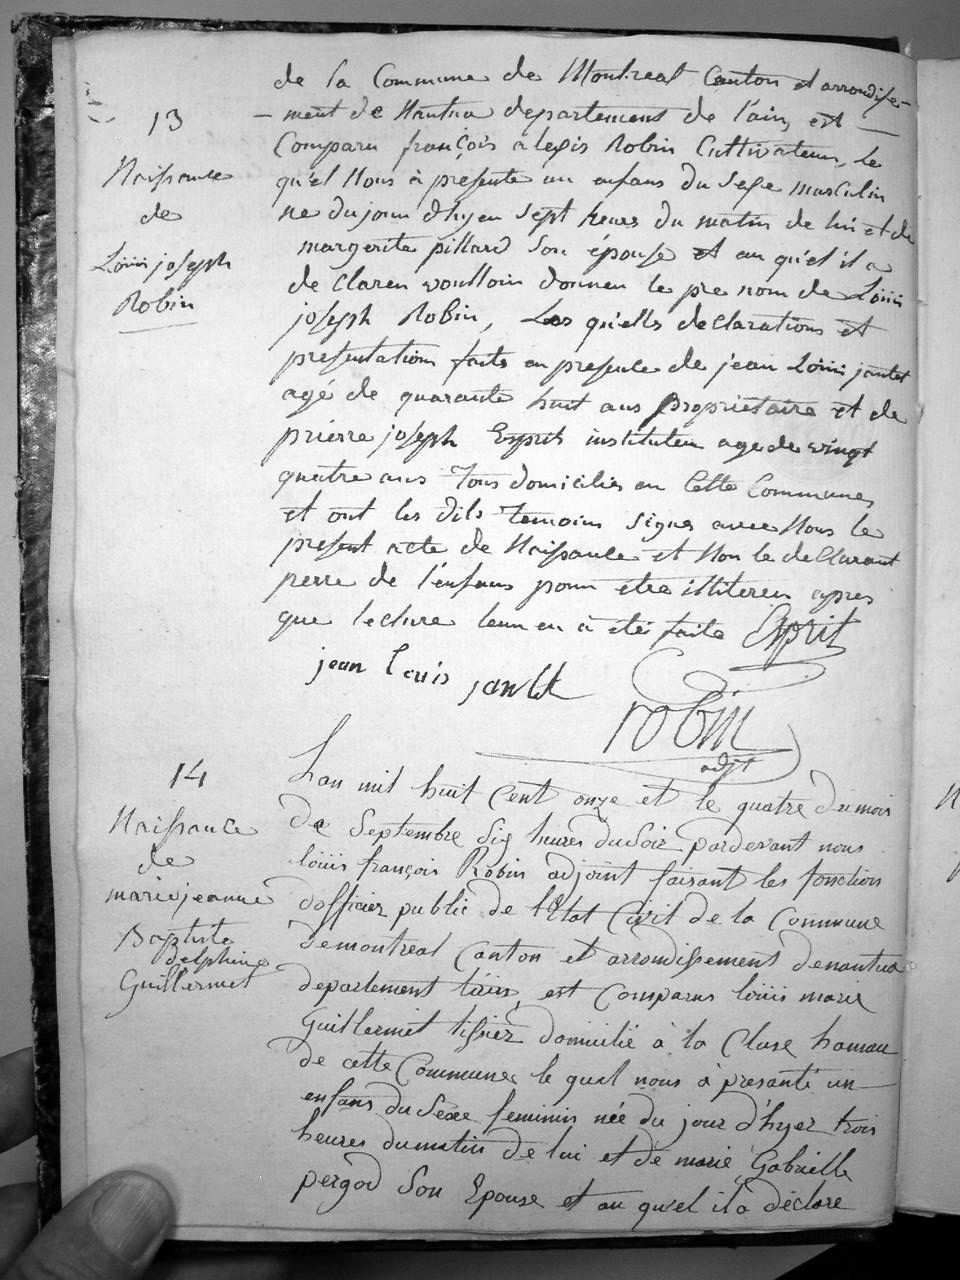 de la Commune de Montreal Canton et arrondisse-
- ment de Nantua departement de l'ain, est
Comparu françois alexis Robin Cultivateur, le
qu'el Nous à presenté un enfans du Sexe masculin
né du jour d'hyer sept heures du matin de lui et de
margerite pillard son épouse et au qu'el il a
de claren voulloir donner le pre nom de Louis
joseph Robin, Les qu'ells declarations et
presentations faits en presence de jean Louis jantet
agé de quarante huit ans propriétaire et de
pierre joseph Esprit instituteur age de vingt
quatre ans Tous domicilies en Cette Commune,
et ont les dits Temoins signe avec Nous le
present acte de Naissance et Non le declarant
perre de l'enfans pour etre illiteren apres
que lecture leur en à été faite Esprit
jean louis jantet
robin
adjt
13
Naissance
de
Louis joseph
Robin
14
Naissance
de
marie jeanne
Baptiste
delphine
Guillermet
Lan mil huit Cent onze et le quatre du mois
De Septembre Six heures du Soir pardevant nous
louis françois Robin adjoint faisant les fonction
dofficier public de l'Etat Civil de la Commune
demontreal Canton et arrondissement denantua
departement lain, est Comparus louis marie
Guillermet tissier domicilié à la Cluse hameau
de cette Commune, le quel nous à presanté un
enfans du Sexe feminin née du jour d'hyer trois
heures du matin de lui et de marie Gabrielle
pergod Son Epouse et au qu'el il a déclare